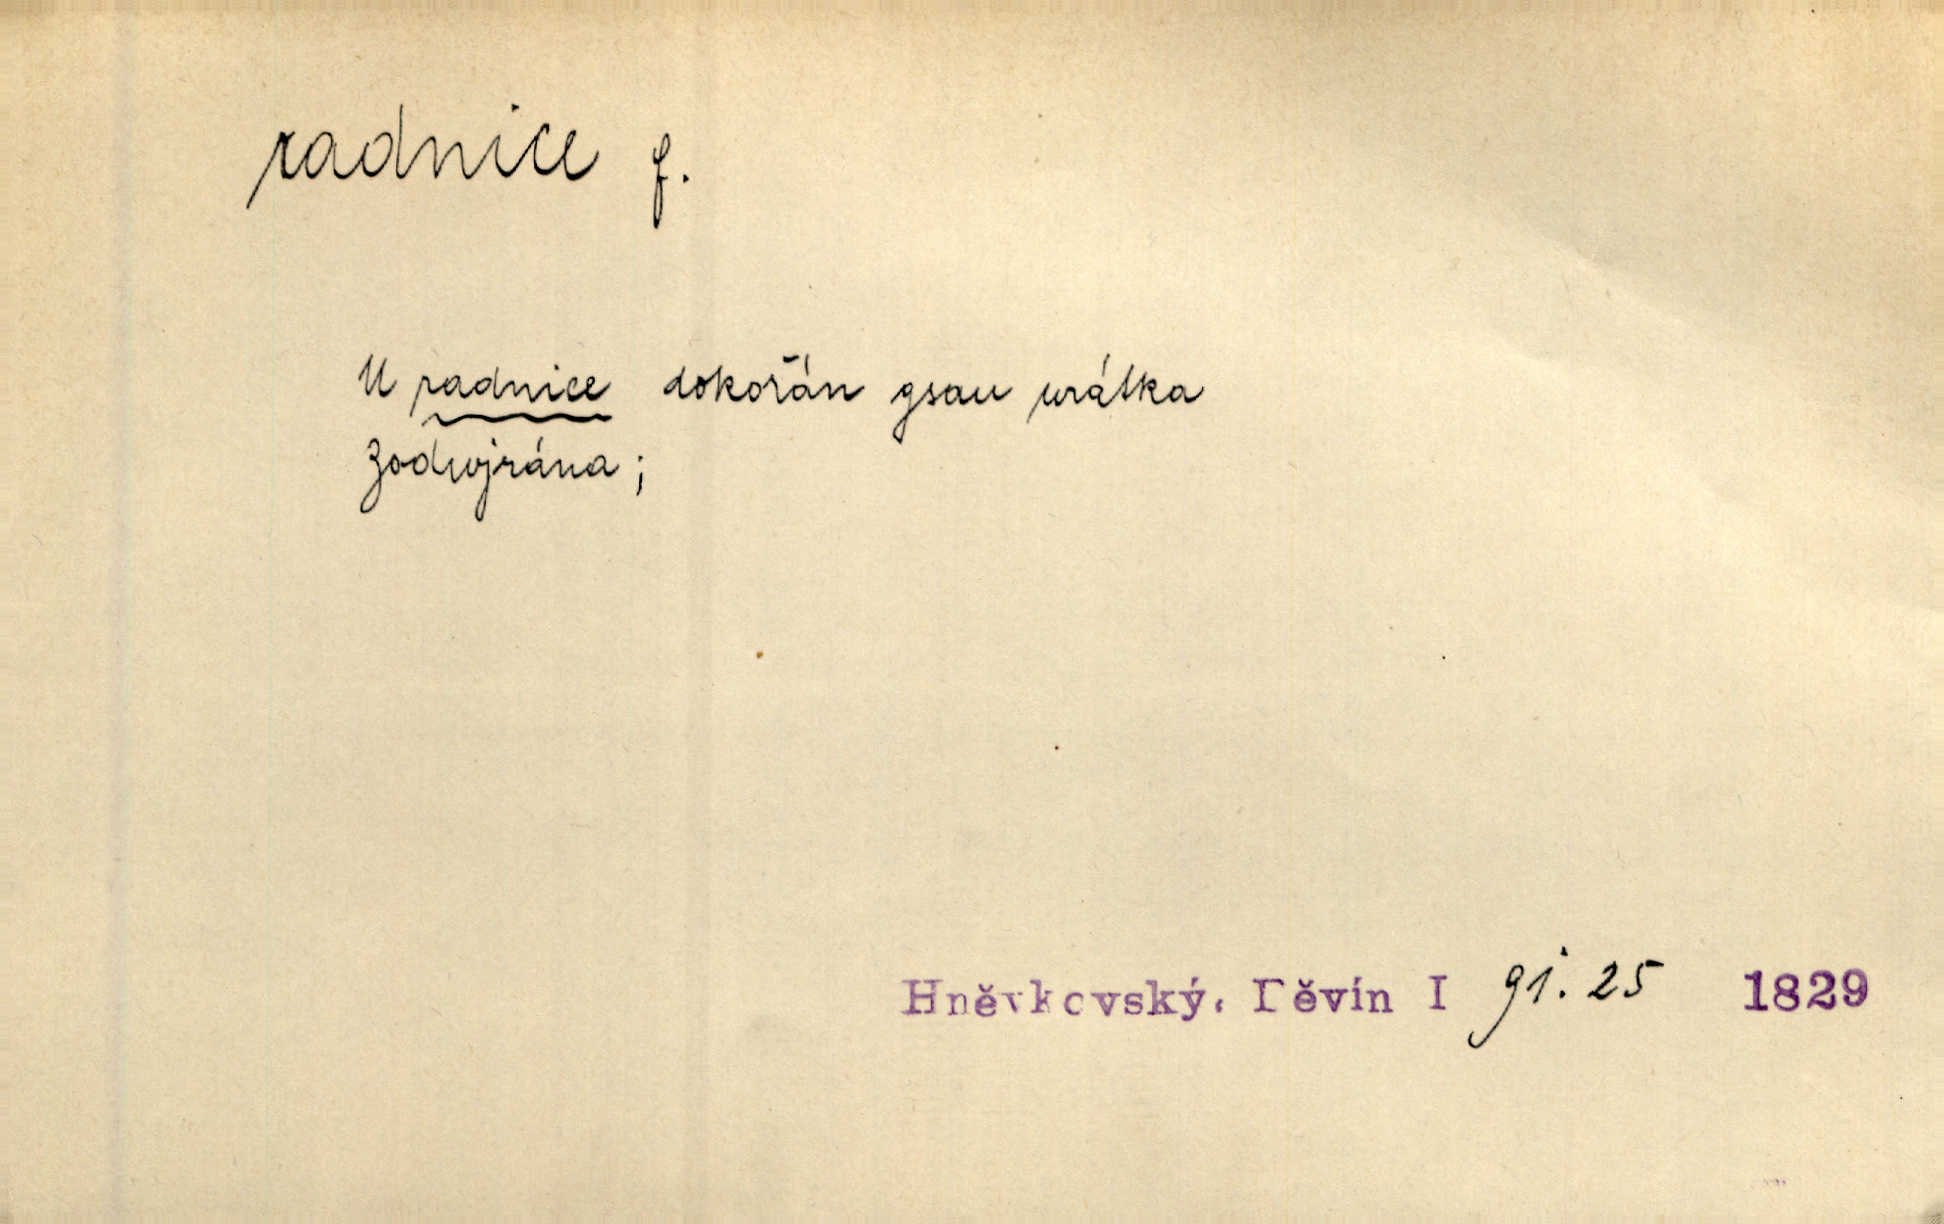 radnice f.
U radnice dokořán gsau wrátka
Zodwjrána;
Hněvkovský. Děvín I 91. 25 1829